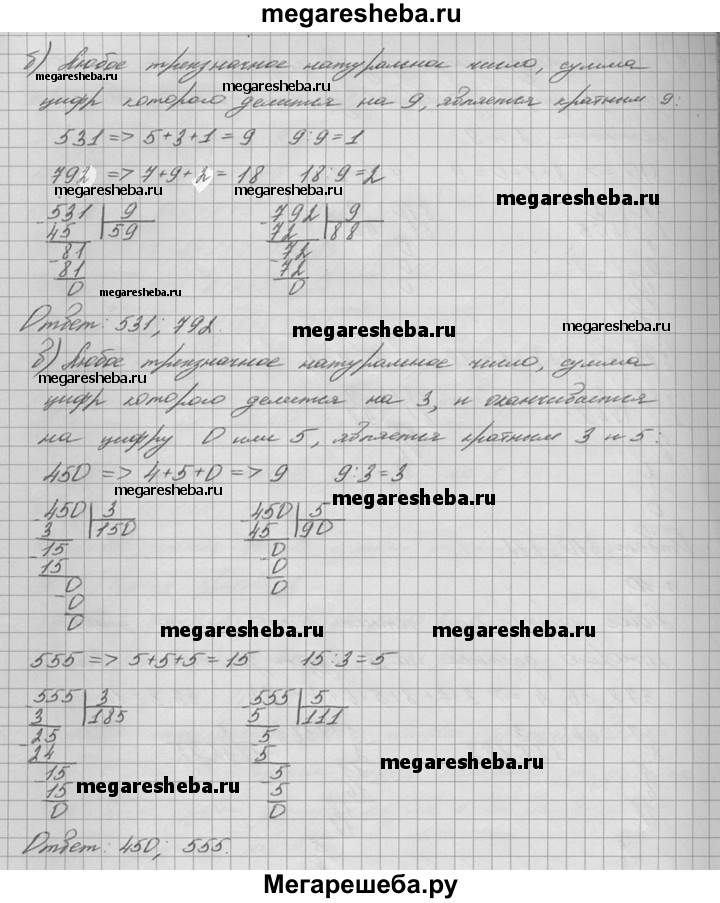 megaresheba.ru
б) Любое трехзначное натуральное число, сумма
megaresheba.ru megaresheba.ru
цифр которого делится на 9, является кратным 9:
531 => 5+3+1 = 9 9:9=1
792 => 7+9+2 = 18 18:9=2
megaresheba.ru megaresheba.ru megaresheba.ru
- 531 | 9 - 792 | 9
45 | 59 72 | 88
- 81 - 72
81 72
0 0
megaresheba.ru
Ответ: 531; 792.
megaresheba.ru megaresheba.ru
в) Любое трехзначное натуральное число, сумма
megaresheba.ru
цифр которого делится на 3, и оканчивается
на цифру 0 или 5, является кратным 3 и 5:
450 => 4+5+0 => 9 9:3=3
megaresheba.ru megaresheba.ru
- 450 | 3 - 450 | 5
3 | 150 45 | 90
- 15 - 0
15 0
- 0 0
0
0
megaresheba.ru megaresheba.ru
555 => 5+5+5 = 15 15:3=5
- 555 | 3 - 555 | 5
3 | 185 5 | 111
- 25 - 5
24 5
- 15 - 5
15 5
0 0
megaresheba.ru megaresheba.ru
Ответ: 450; 555.
Мегарешеба.ру